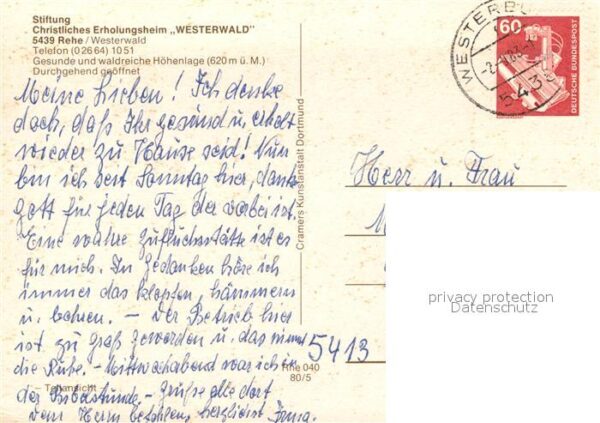 Stiftung
Christliches Erholungsheim „WESTERWALD"
5439 Rehe / Westerwald
Telefon (0 26 64) 10 51
Gesunde und waldreiche Höhenlage (620 m ü. M.)
Durchgehend geöffnet
Meine Lieben! Ich denke
doch, daß Ihr gesund u. erholt
wieder zu Hause seid! Nun
bin ich seit Sonntag hier, danke
Gott für jeden Tag der vorbei ist.
Eine wahre Zufluchsstätte ist es
für mich. In Gedanken höre ich
immer das klopfen, hämmern
u. bohren. – Der Betrieb hier
ist zu groß geworden u. das nimmt
die Ruhe. – Mittwochabend war ich in
der Bibelstunde. – Grüße alle dort
dem Herrn befohlen, herzlichst Irma.
– Teilansicht
Cramers Kunstanstalt Dortmund
Rhe 040
80/5
WESTERBU
5439
60
DEUTSCHE BUNDESPOST
Herr u. Frau
M
5413
privacy protection
Datenschutz